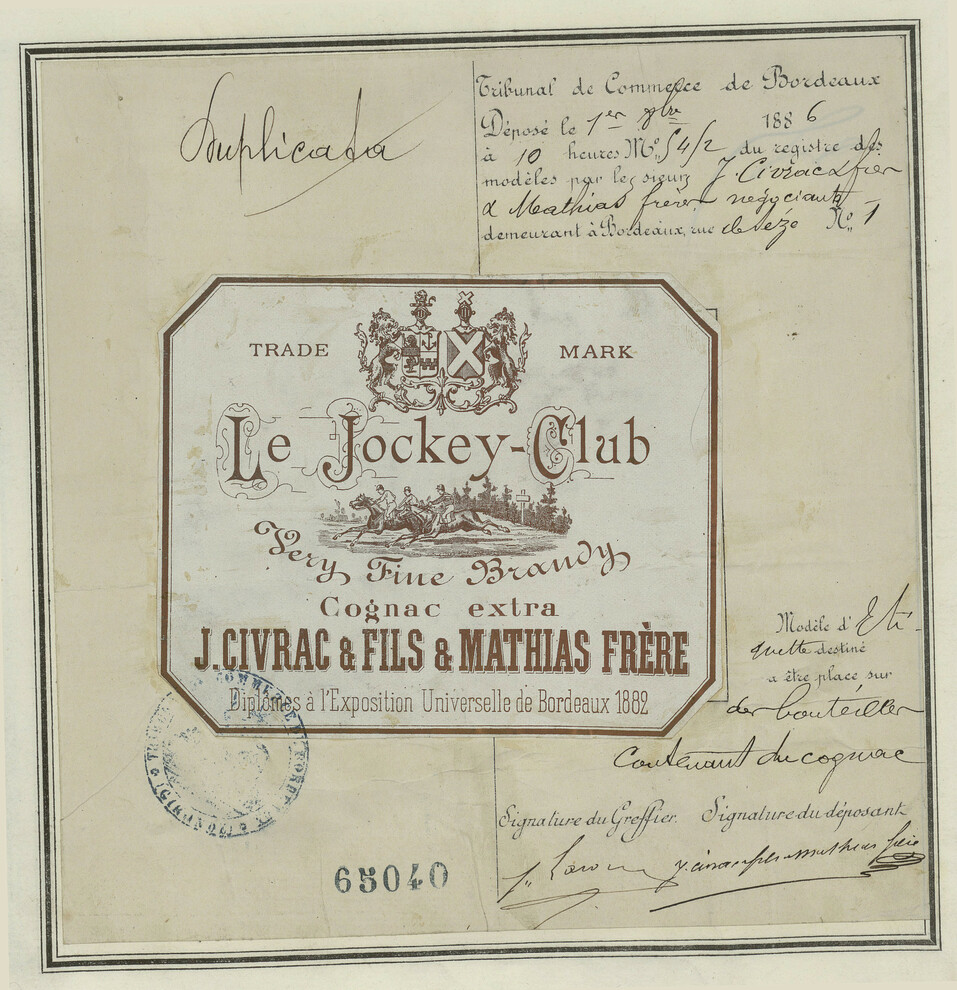 Duplicata
Tribunal de Commerce de Bordeaux
Déposé le 1er 8bre 1886
à 10 heures No 5412 du registre des
modèles par les sieurs J. Civrac & fils
& Mathias frère négociants
demeurant à Bordeaux, rue de Sèze No 1
TRADE MARK
Le Jockey-Club
Very Fine Brandy
Cognac extra
J. CIVRAC & FILS & MATHIAS FRÈRE
Diplômes à l'Exposition Universelle de Bordeaux 1882
Modèle d'Eti-
quette destiné
a être place sur
des bouteilles
Contenant du cognac
Signature du Greffier. Signature du déposant
J. Civrac fils Mathias frère
COMMERCE DE BORDEAUX
(GIRONDE)
65040